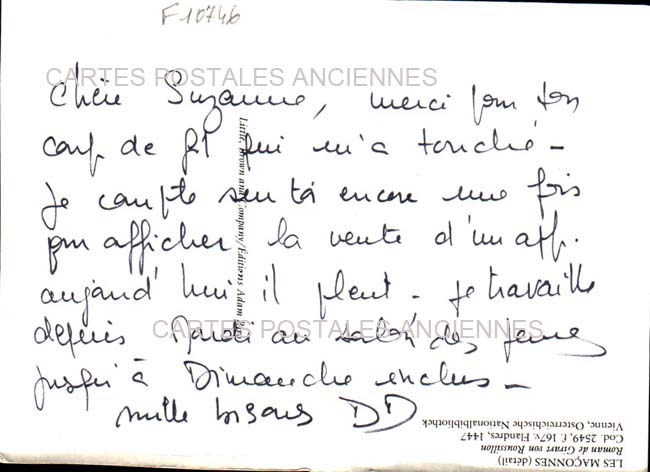 F1074b
CARTES POSTALES ANCIENNES
Chère Suzanne, merci pour ton
coup de fil qui m'a touché -
Je compte sur toi encore une fois
pour afficher la vente d'un app.
aujourd'hui il pleut - Je travaille
depuis Mardi au salon des jeunes
jusqu'à Dimanche inclus -
mille bisous DD
CARTES POSTALES ANCIENNES
Little, Brown and Company/Editions Adam
LES MAÇONNES (détail)
Roman de Girart von Roussillon
Cod. 2549, f. 167v. Flandres, 1447
Vienne, Osterreichische Nationalbibliothek